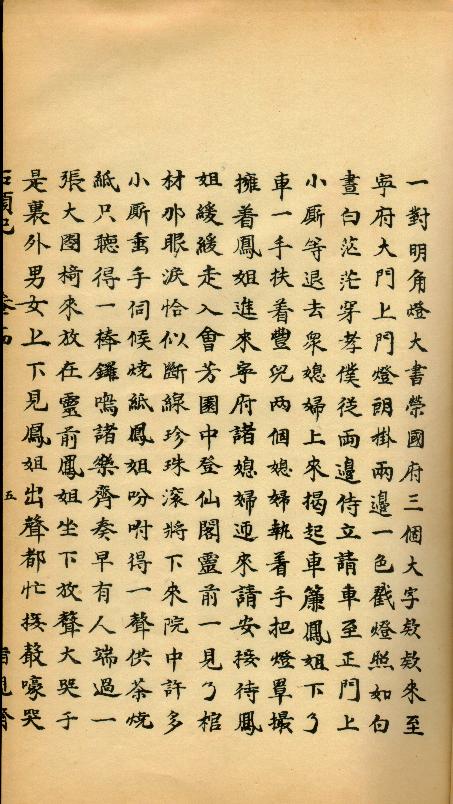 一對明角燈大書榮國府三個大字欵欵來至
寕府大門上門燈朗掛兩邊一色戳燈照如白
晝白茫茫穿孝僕從兩邉侍立請車至正門上
小厮等退去衆媳婦上來揭起車簾鳳姐下了
車一手扶着豐兒兩個媳婦執着手把燈罩撮
擁着鳳姐進來寕府諸媳婦迎來請安接待鳳
姐緩緩走入會芳園中登仙閣靈前一見了棺
材那眼淚恰似斷線珍珠滚將下來院中許多
小厮垂手伺候燒紙鳳姐吩咐得一聲供茶燒
紙只聽得一棒鑼鳴諸樂齊奏早有人端過一
張大圈椅來放在靈前鳳姐坐下放聲大哭于
是裏外男女上下見鳳姐出聲都忙接聲嚎哭
石頭記 卷十四 五